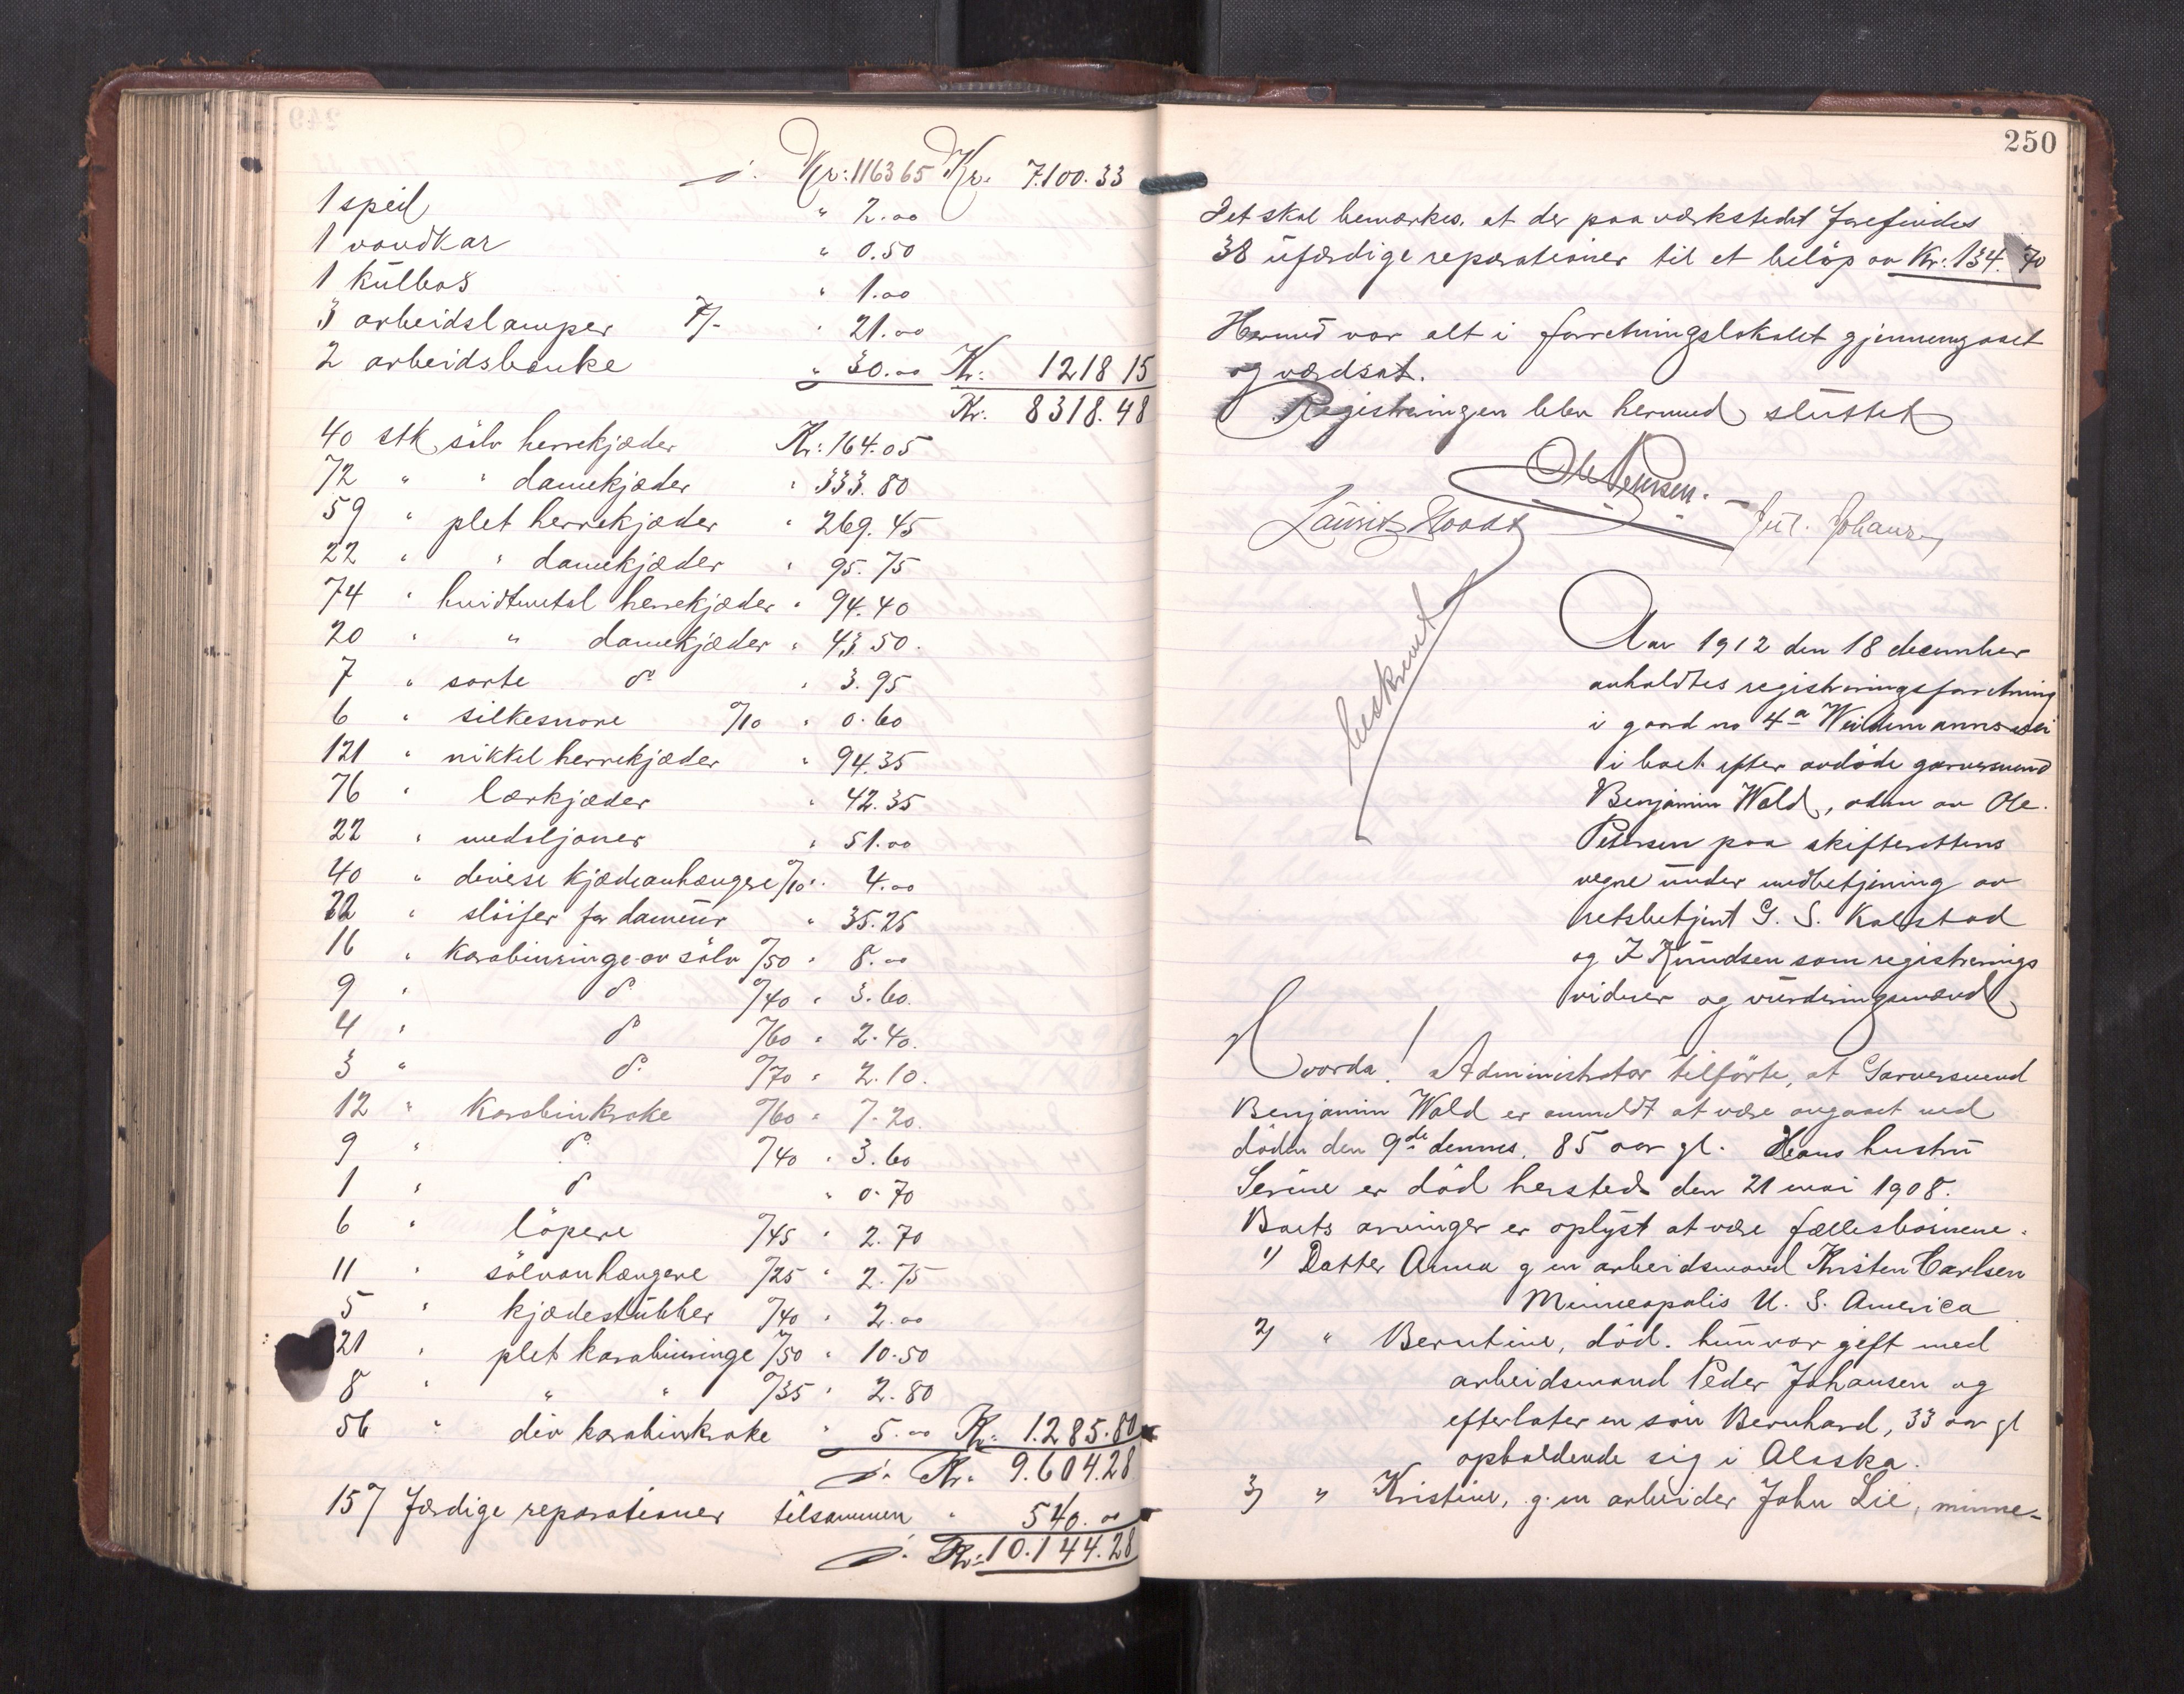 j. Kr: 1163 65 Kr. 7.100.33
1 speil " 2.00
1 vandkar " 0.50
1 külbas " 1.00
3 arbeidslamper 7/- " 21.00
2 arbeidsbænke " 30.00 Kr: 1218 15
Kr. 8318.48
40 stk sölv herrekjæder Kr: 164.05
72 " " damekjæder " 333.80
59 " plet herrekjæder " 269.45
22 " " damekjæder " 95.75
74 " hvidtmetal herrekjæder " 94.40
20 " " damekjæder " 43.50.
7 " sorte do " 3.95
6 " silkesnore %10 " 0.60
121 " nikkel herrekjæder " 94.35
76 " lærkjæder " 42.35
22 " medaljoner " 51.00
40 " diverse kjædeanhængere %10 " 4.00
22 " slöifer for dameür " 35.25
16 " karabinringe av sölv %50 " 8.00
9 " do %40 " 3.60.
4 " do %60 " 2.40.
3 " do %70 " 2.10.
12 " Karabinkroke %60 " 7.20.
9 " do %40 " 3.60
1 " do " 0.70
6 " löpere %45 " 2.70
11 " sölvanhængere %25 " 2.75
5 " kjædestübber %40 " 2.00
21 " plet karabinringe %50 " 10.50
8 " " " %35 " 2.80
56 " div karabinkroke " 5.00 Kr. 1.285.80
j. Kr. 9.604.28
157 færdige reparationer tilsammen " 540.00
j. Kr: 10.144.28
250
Det skal bemærkes, at der paa verkstedet forefindes
38 üfærdige reparationer til et belöp av Kr: 134.70
Hermed var alt i forretningslokalet gjennemgaaet
og værdsat.
Registreringen blev hermed slüttet
Ole Petersen.
Jül. Johansen
beskrevet
Aar 1912 den 18 december
avholdtes registreringsforretning
i gaard no 4a Weidemannsvei
i boet efter avdöde garversvend
Benjamin Wold, adm av Ole
Petersen paa skifterettens
vegne ünder medbetjening av
retsbetjent G. S. Kalstad
og I Knüdsen som registrerings
vidner og vürderingsmænd
Hvorda! Administrator tilförte, at Garversvend
Benjamin Wold er anmeldt at være avgaaet ved
döden den 9de dennes, 85 aar gl. Hans hustrü
Serine er död hersteds den 21 mai 1908.
Boets arvinger er oplyst at være fællesbarnene.
1) Datter Anna g m arbeidsmand Kristen Carlsen
Minneapolis U. S. America
2) " Berntine, död. hün var gift med
arbeidsmand Peder Johansen og
efterlater en sön Bernhard, 33 aar gl
opholdende sig i Alaska.
3) " Kristine, g. m arbeider John Lie, minne-